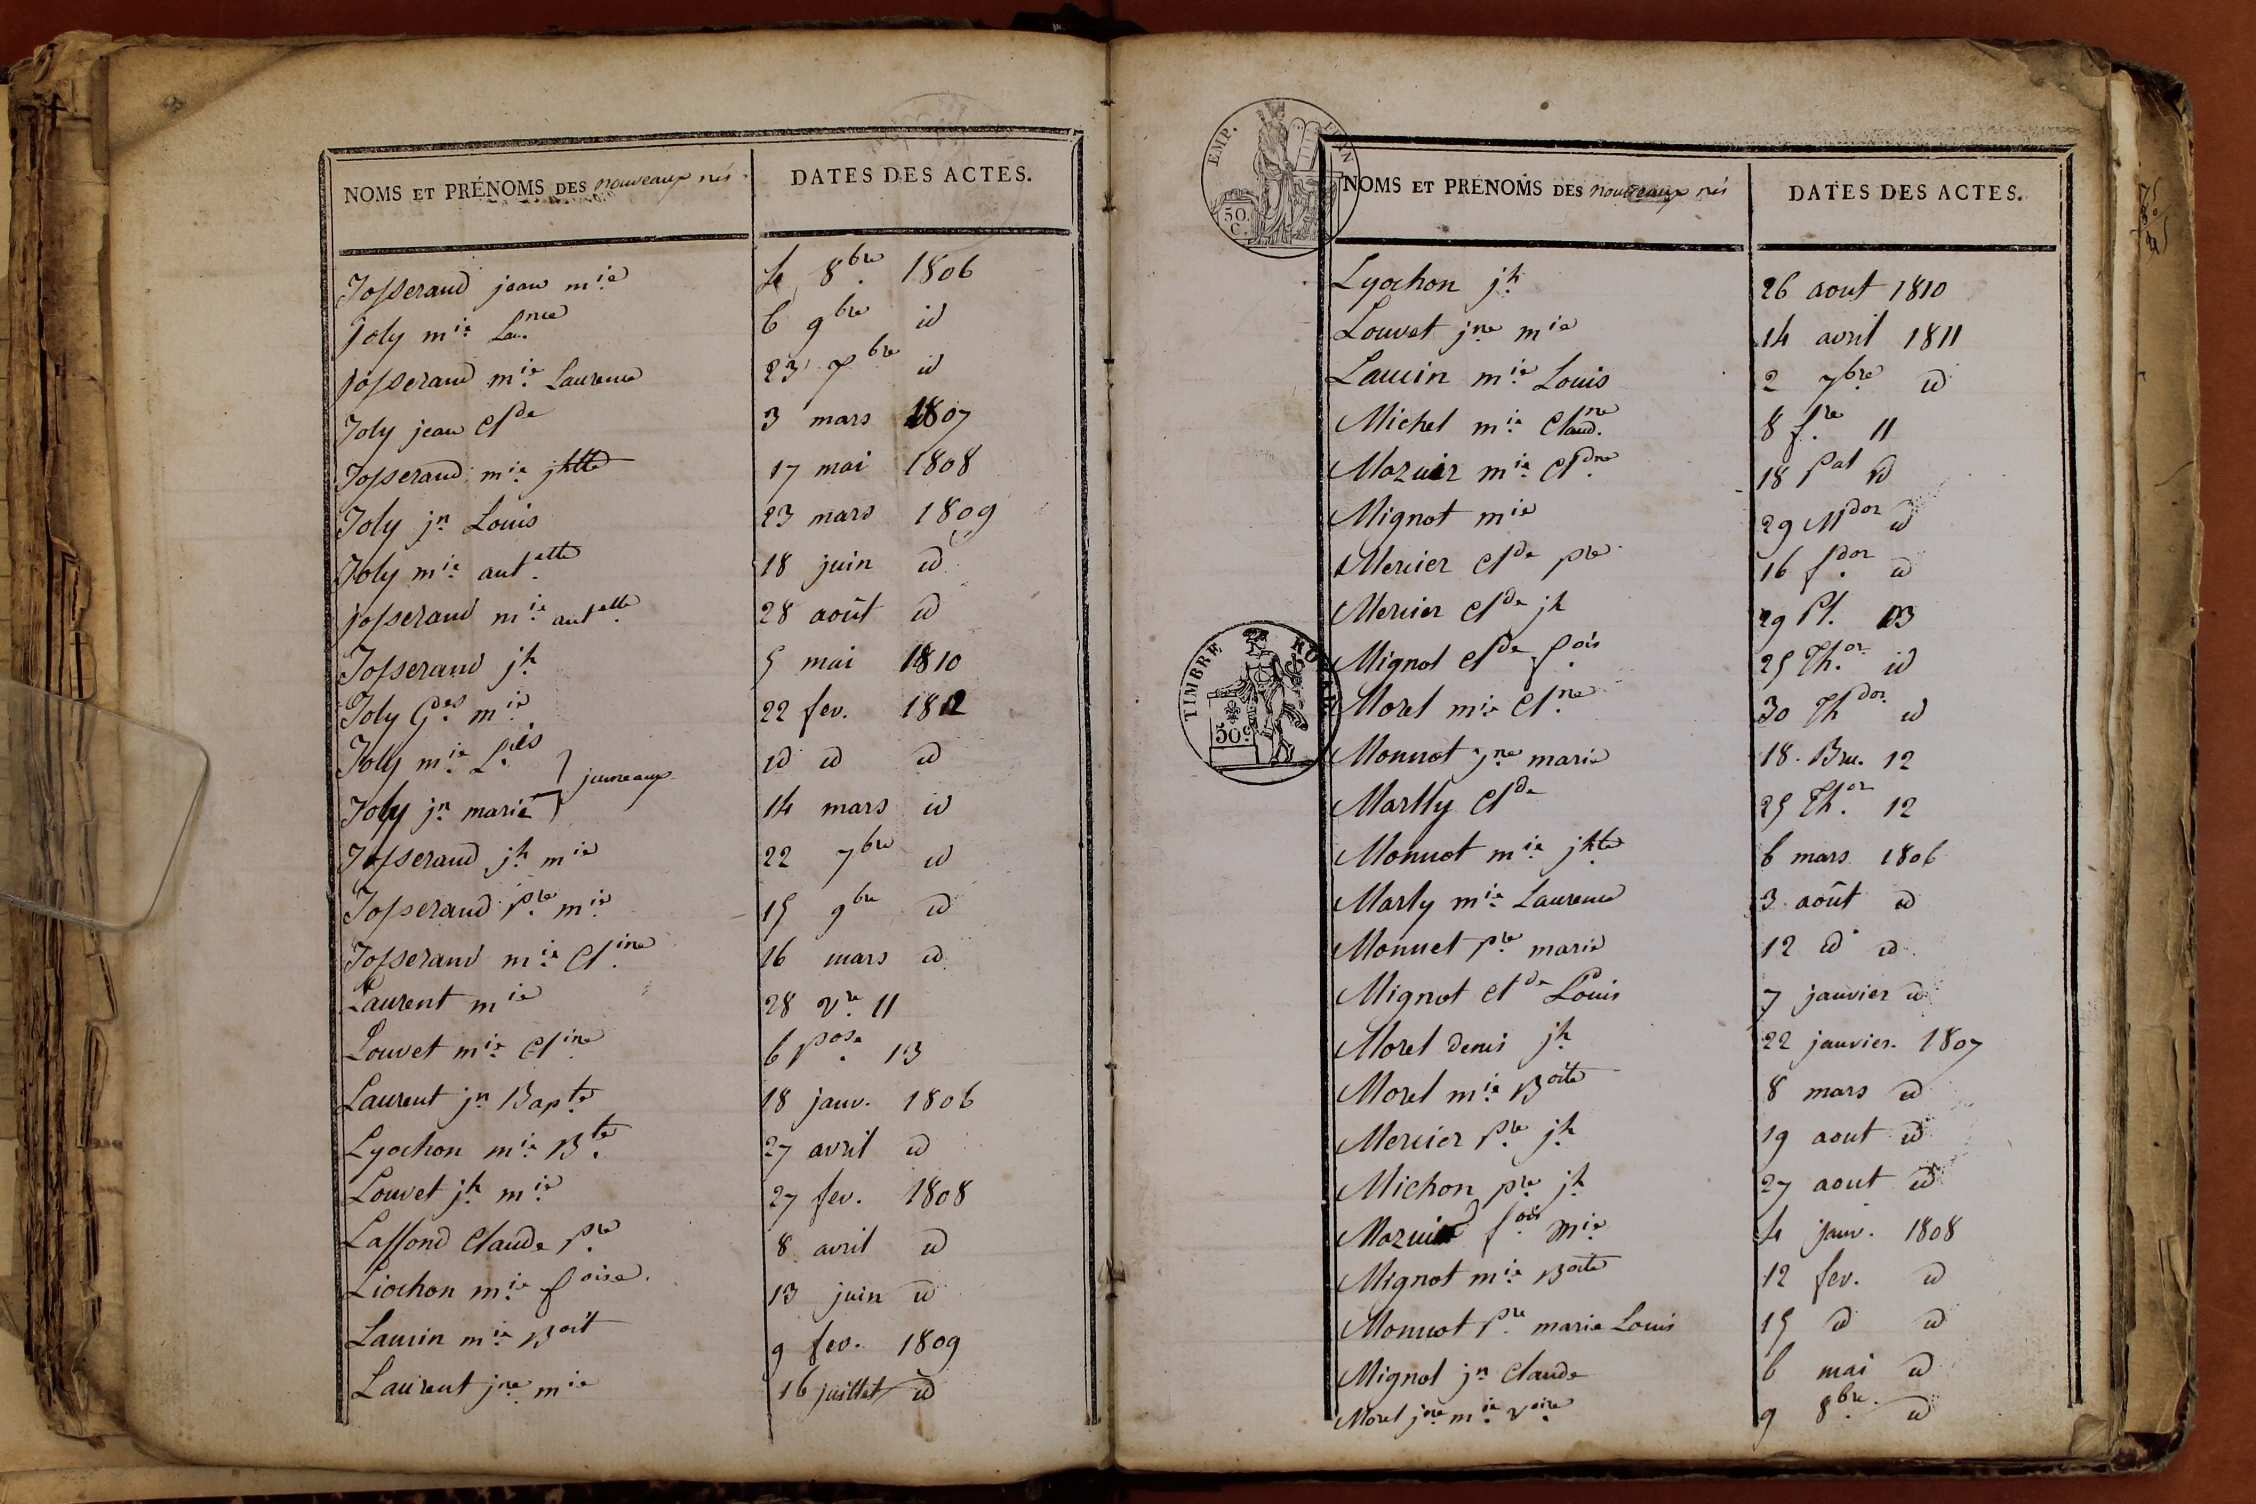 NOMS ET PRÉNOMS DES nouveaux nés
DATES DES ACTES.
Josserand jean mie 4 8bre 1806
Joly mie Launce 6 9bre id
josserand mie Laurence 23 7bre id
Joly jean Clde 3 mars 1807
Josserand mie jhtte 17 mai 1808
Joly jn Louis 23 mars 1809
Joly mie antette 18 juin id
josserand mie antette 28 août id
Josserand jh 5 mai 1810
Joly Ges mie 22 fev. 1812
Joly mie id id id
jumeaux
Joly jn marie 14 mars id
Josserand jh mie 22 7bre id
Josserand Pre mie 15 9bre id
Josserand mie Cline 16 mars id
Laurent mie 28 vre 11
Louvet mie Cline 6 13
Laurent jn Bapte 18 janv. 1806
Lyochon mie Bte 27 avril id
Louvet jh mie 27 fev. 1808
Laffond Claude Pre 8 avril id
Liochon mie foise 13 juin id
Lauvin mie Boit 9 fev. 1809
Laurent jne mie 16 juillet id
EMP. FRAN
50. C.
NOMS ET PRÉNOMS DES nouveaux nés
DATES DES ACTES.
Lyochon jh 26 aout 1810
Louvet jne mie 14 avril 1811
Lauvin mie Louis 2 7bre id
Michel mie Claudne 8 fre 11
Mazuir mie Cldne 18 Pal id
Mignot mie 29 Mdor id
Mercier Clde pre 16 fdor id
Mercier Clde jh 29 Pl. 13
Mignot Clde fois 25 Thor id
TIMBRE ROYAL
50c
Morel mie Clne 30 Thdor id
Monnot jne marie 18 Bru. 12
Martly Clde 25 Thor 12
Monnot mie jhte 6 mars 1806
Marly mie Laurence 3 août id
Monnet Pre marie 12 id id
Mignot Clde Louis 7 janvier id
Morel denis jh 22 janvier 1807
Morel mie Boite 8 mars id
Mercier Pre jh 19 aout id
Michon pre jh 27 aout id
Mazuir fois mie 4 janv. 1808
Mignot mie Boite 12 fev. id
Monnot Pre marie Louis 15 id id
Mignot jn Claude 6 mai id
Morel jne mie voire 9 8bre id